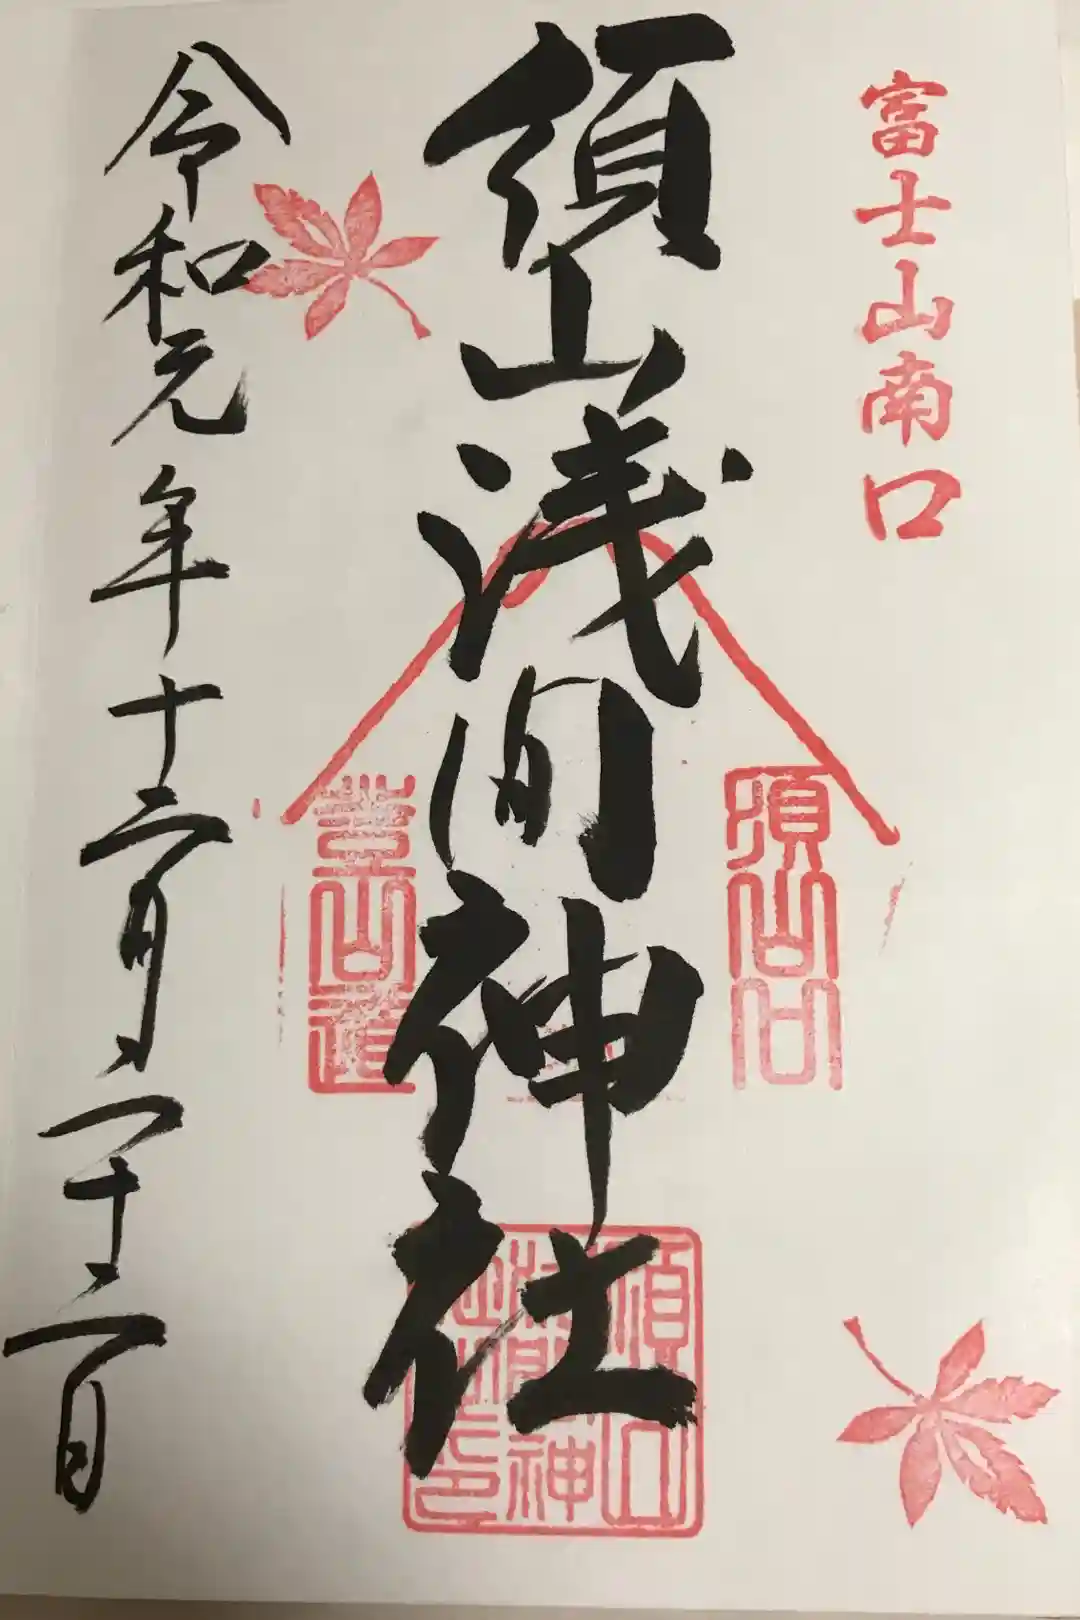 富士山南口
須山浅間神社
令和元年十二月二十二日
須山口
登山道